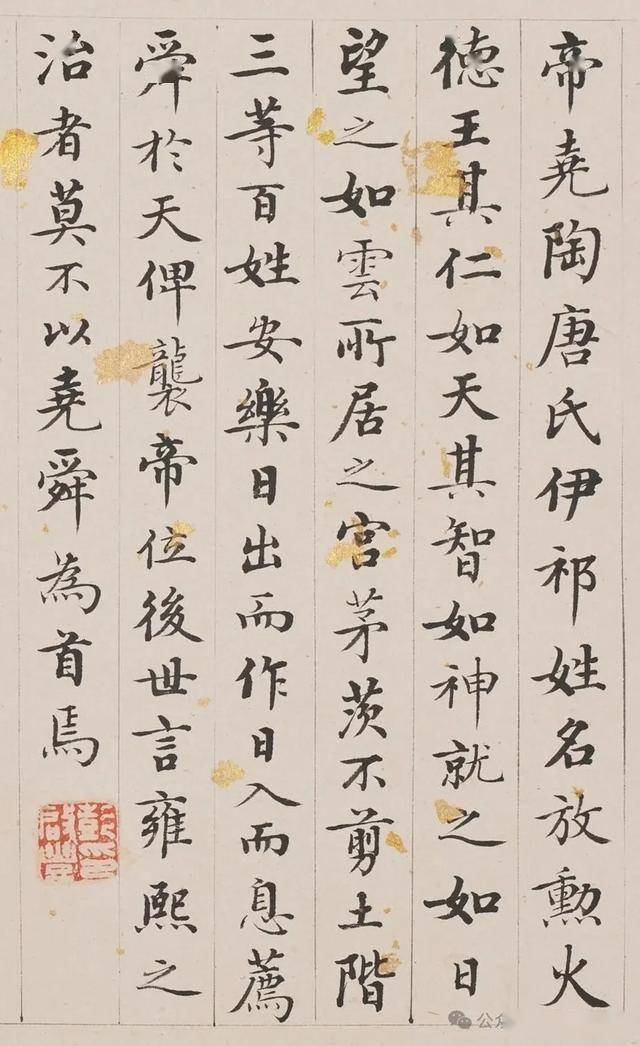 帝堯陶唐氏伊祁姓名放勳火
德王其仁如天其智如神就之如日
望之如雲所居之宮茅茨不剪土階
三等百姓安樂日出而作日入而息薦
舜於天俾襲帝位後世言雍熙之
治者莫不以堯舜為首焉
彭啟豐印
公